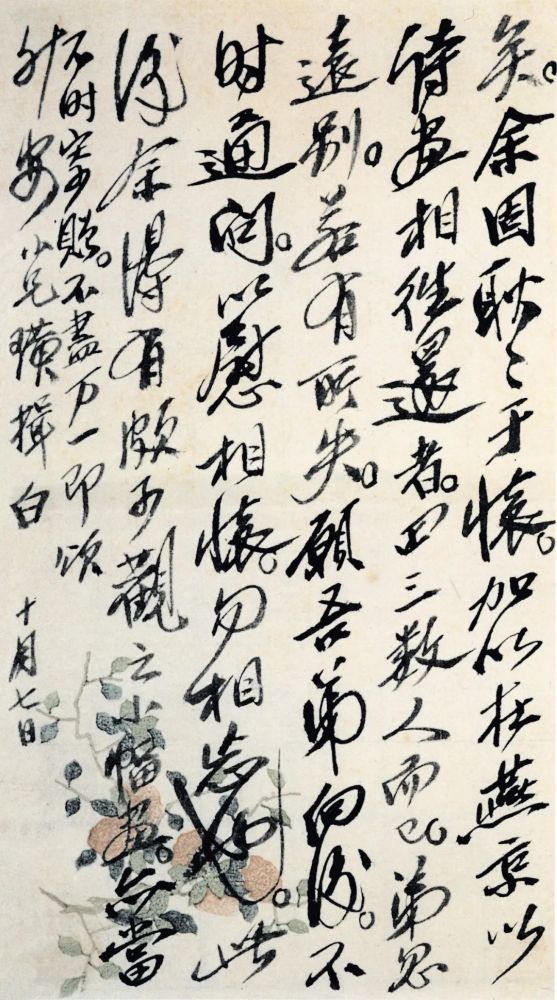 矣。余固耿〻于懷。加以在燕京以
詩畫相徃還者。三數人而已。弟忽
遠别。若有所失。願吾弟向後。不
时通问。以慰相懷。勿相忘也。此
後余得有頗可觀之小幅畫。亦當
不时寄。不盡万一即頌
安 小兄璜揖白 十月七日